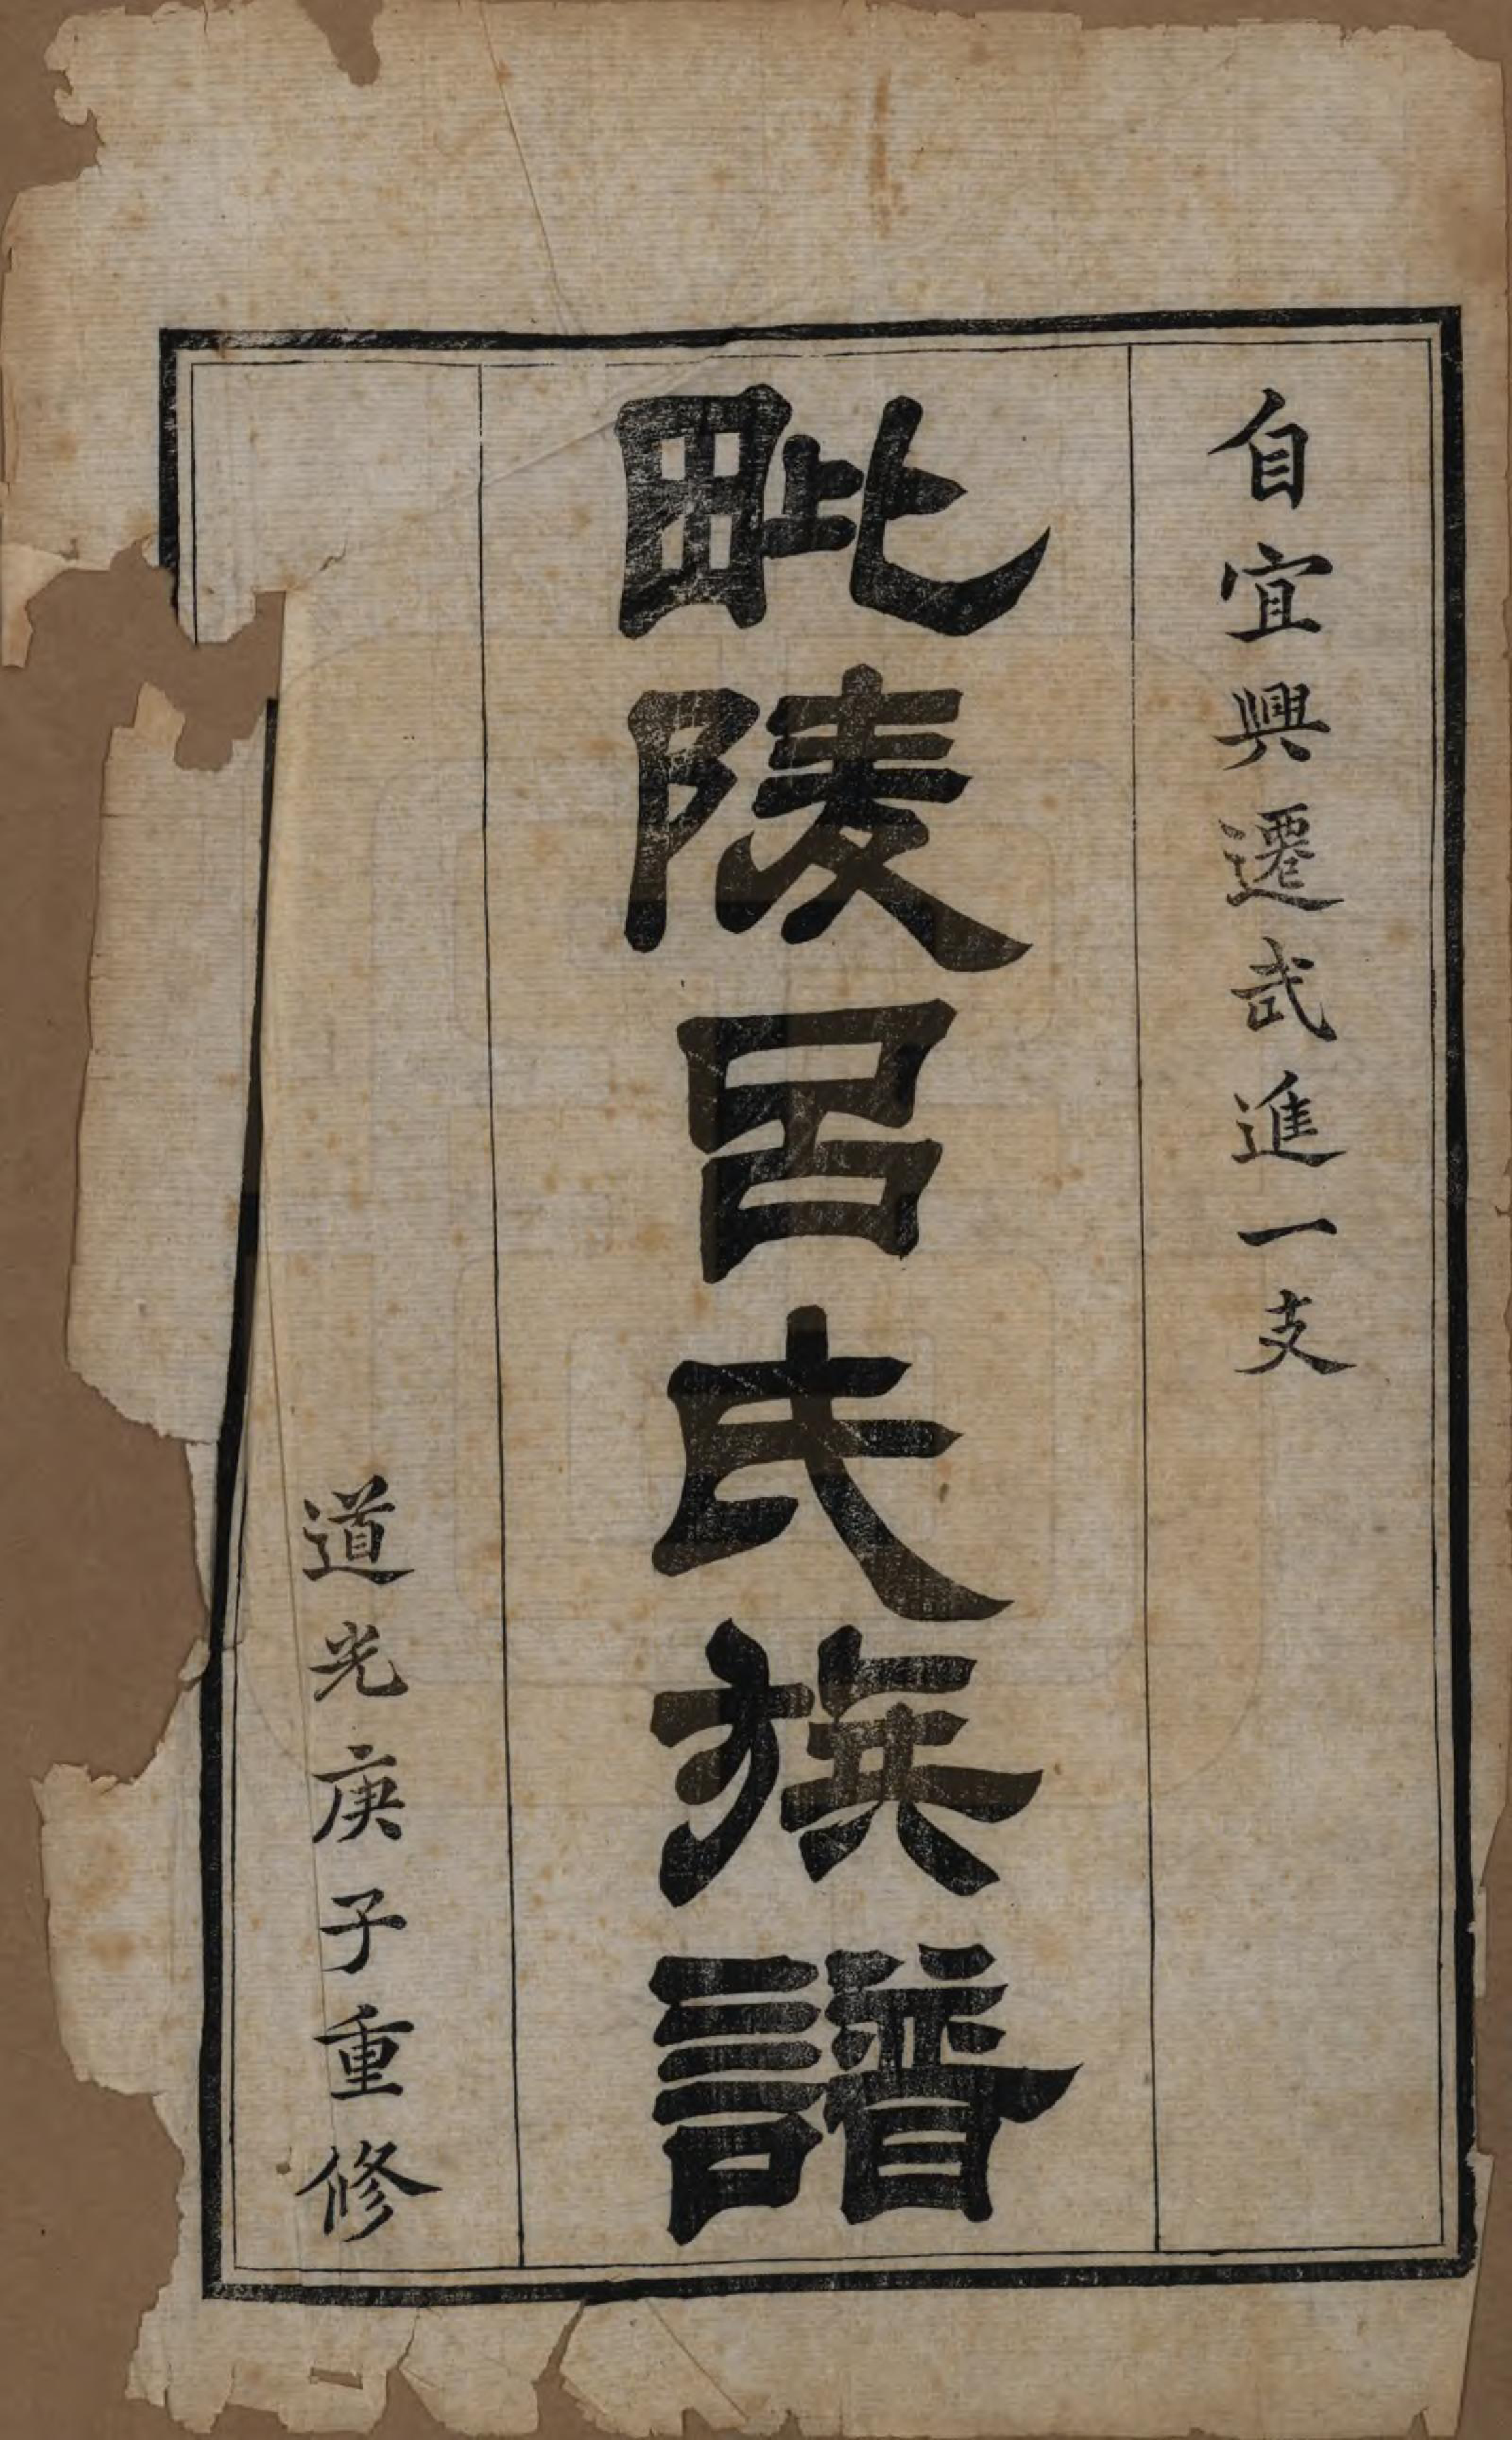 自宜興遷武進一支
毗陵呂氏族譜
道光庚子重修